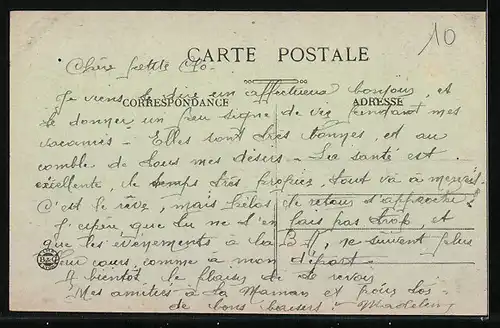 10
CARTE POSTALE
Chère petite Clo.
Je viens te dire un affectueux bonjour, et
CORRESPONDANCE
ADRESSE
te donner un peu signe de vie pendant mes
vacances - Elles sont très bonnes, et au
comble de tous mes désirs - La santé est
excellente, le temps très propice, tout va à merveille
C'est le rêve, mais hélas le retour d'approche!
J'espère que tu ne t'en fais pas trop, et
que les événements à la ne suivent plus
leur cours, comme à mon départ -
A bientôt le plaisir de te revoir
Mes amitiés à ta Maman et pour toi
de bons baisers. Madeleine
B&G